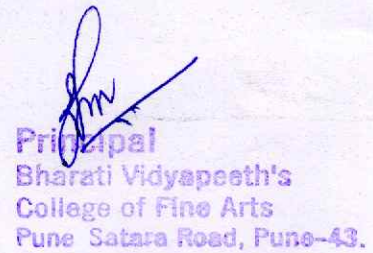 Principal
Bharati Vidyapeeth's
College of Fine Arts
Pune Satara Road, Pune-43.